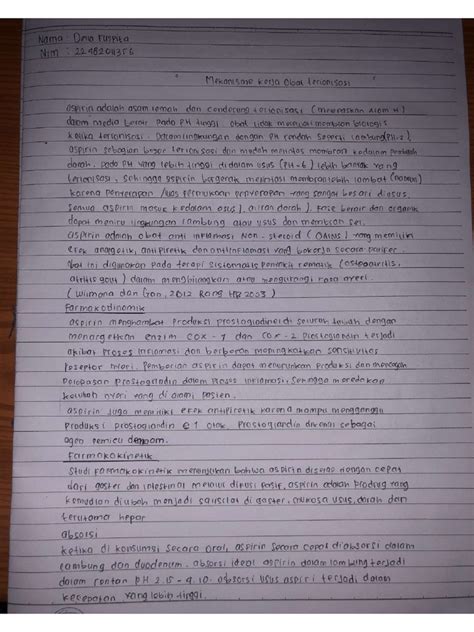 Nama : Dina Puspita
Nim : 2248201356
" Mekanisme kerja Obat terionisasi
aspirin adalah asam lemah dan cenderung terionisasi (melepaskan atom H)
dalam media berair pada PH tinggi. obat tidak melintasi membran biologis
ketika terionisasi. Dalam lingkungan dengan PH rendah seperti lambung (PH=2),
aspirin sebagian besar terionisasi dan mudah melintas membran kedalam pembuluh
darah. pada PH yang lebih tinggi didalam usus (PH=6) lebih banyak yang
terionisasi, sehingga aspirin bergerak melintasi membran lebih lambat
karena penyerapan luas permukaan penyerapan yang sangat besar di usus.
Semua aspirin masuk kedalam aliran darah). Fase berair dan organik
dapat meniru lingkungan lambung atau usus dan membran sel.
aspirin adalah obat anti inflamasi Non-steroid (OAINS) yang memiliki
efek analgetik, antipiretik dan antiinflamasi yang bekerja secara perifer.
obat ini digunakan pada terapi sistomatis penyakit rematik (osteoatritis,
atritis gout) dalam menghilangkan atau mengurangi rasa nyeri.
(Wilmana dan Gan, 2012 Rang HP 2003)
Farmakodinamik
aspirin menghambat Produksi prostaglandinel di seluruh tubuh dengan
menargetkan enzim COX-1 dan COX-2 Prostaglandin terjadi
akibat proses inflamasi dan berperan meningkatkan sensitivitas
reseptor nyeri. Pemberian aspirin dapat menurunkan produksi dan mencegah
Pelepasan Prostaglandin dalam proses inflamasi, sehingga meredakan
keluhan nyeri yang di alami pasien.
aspirin juga memiliki efek antipiretik karena mampu mengganggu
Produksi prostaglandin E1 otak. Prostaglandin dikenal sebagai
agen pemicu demam.
Farmakokinetik
Studi farmakokinetik menunjukan bahwa aspirin diserap dengan cepat
dari gaster dan intestinal melalui difusi pasif, aspirin adalah prodrug yang
kemudian diubah menjadi salisilat di gaster, mukosa usus, darah dan
terutama hepar
absorsi
ketika di konsumsi secara oral, aspirin secara cepat diabsorsi dalam
lambung dan duodenum. absorsi ideal aspirin dalam lambung terjadi
dalam rentan PH 2.15 - 4.10. absorsi usus aspirin terjadi dalam
kecepatan yang lebih tinggi.